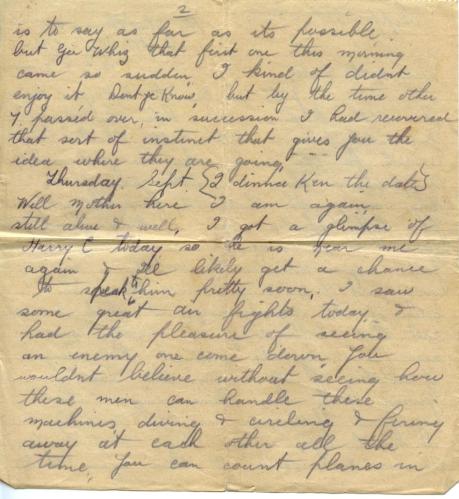 2
is to say as far as its possible.
but Gee Whiz that first one this morning
came so sudden I kind of didnt
enjoy it Dont je Know, but by the time other
7 passed over, in succession I had recovered
that sort of instinct that gives you the
idea where they are going.
Thursday. Sept {I dinnae Ken the date}
Well Mother here I am again
still alive & well, I got a glimpse of
Harry C today so he is near me
again & Ill likely get a chance
to speak to him pretty soon. I saw
some great air fights today &
had the pleasure of seeing
an enemy one come down, you
wouldnt believe without seeing how
these men can handle these
machines, diving & circling & firing
away at each other all the
time, you can count planes in